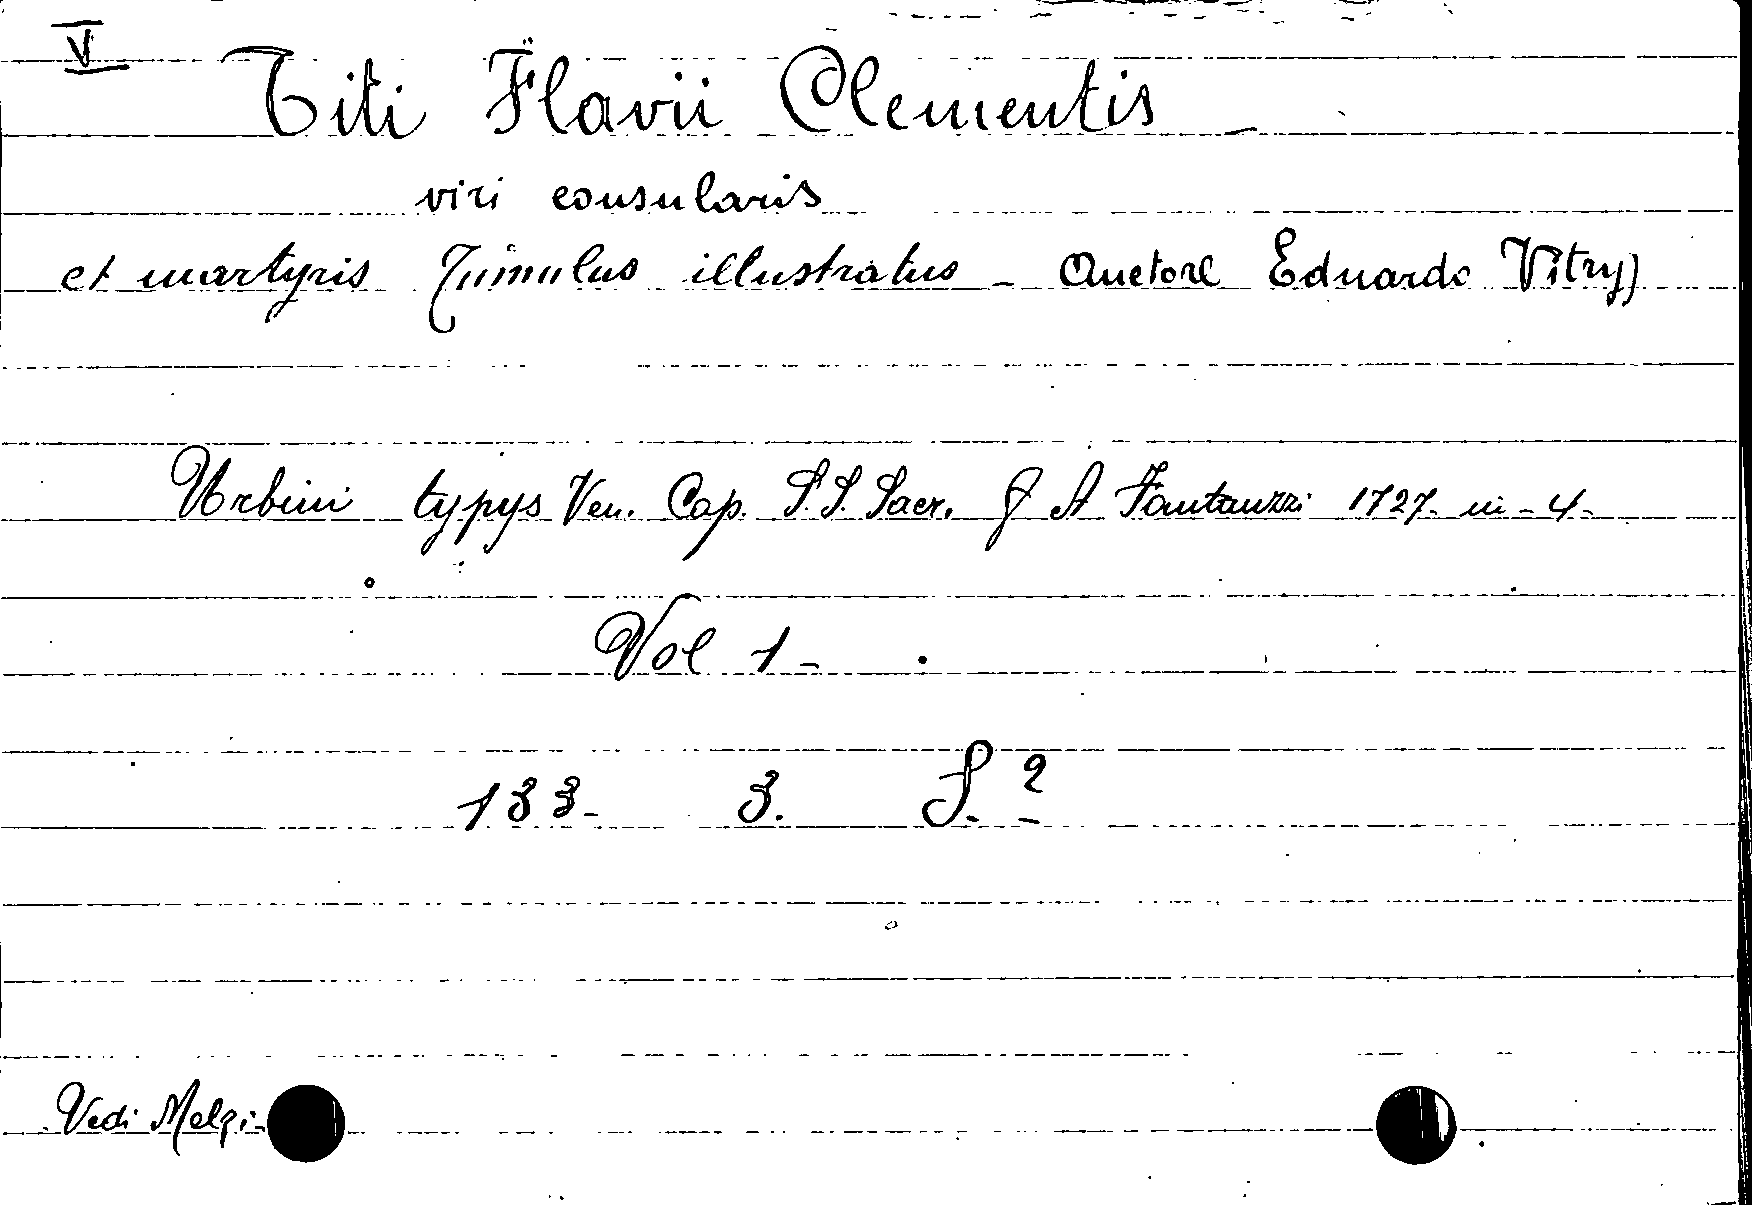 V
Titi Flavii Clementis -
viri consularis
et martyris Tumulus illustratus - Auctore Eduardo Vitry
Urbini typys Ven. Cap. S.S. Sacr. & A Fantauzzi 1727- in-4-
Vol 1-
133- 3. S. 2
Vedi Melzi-